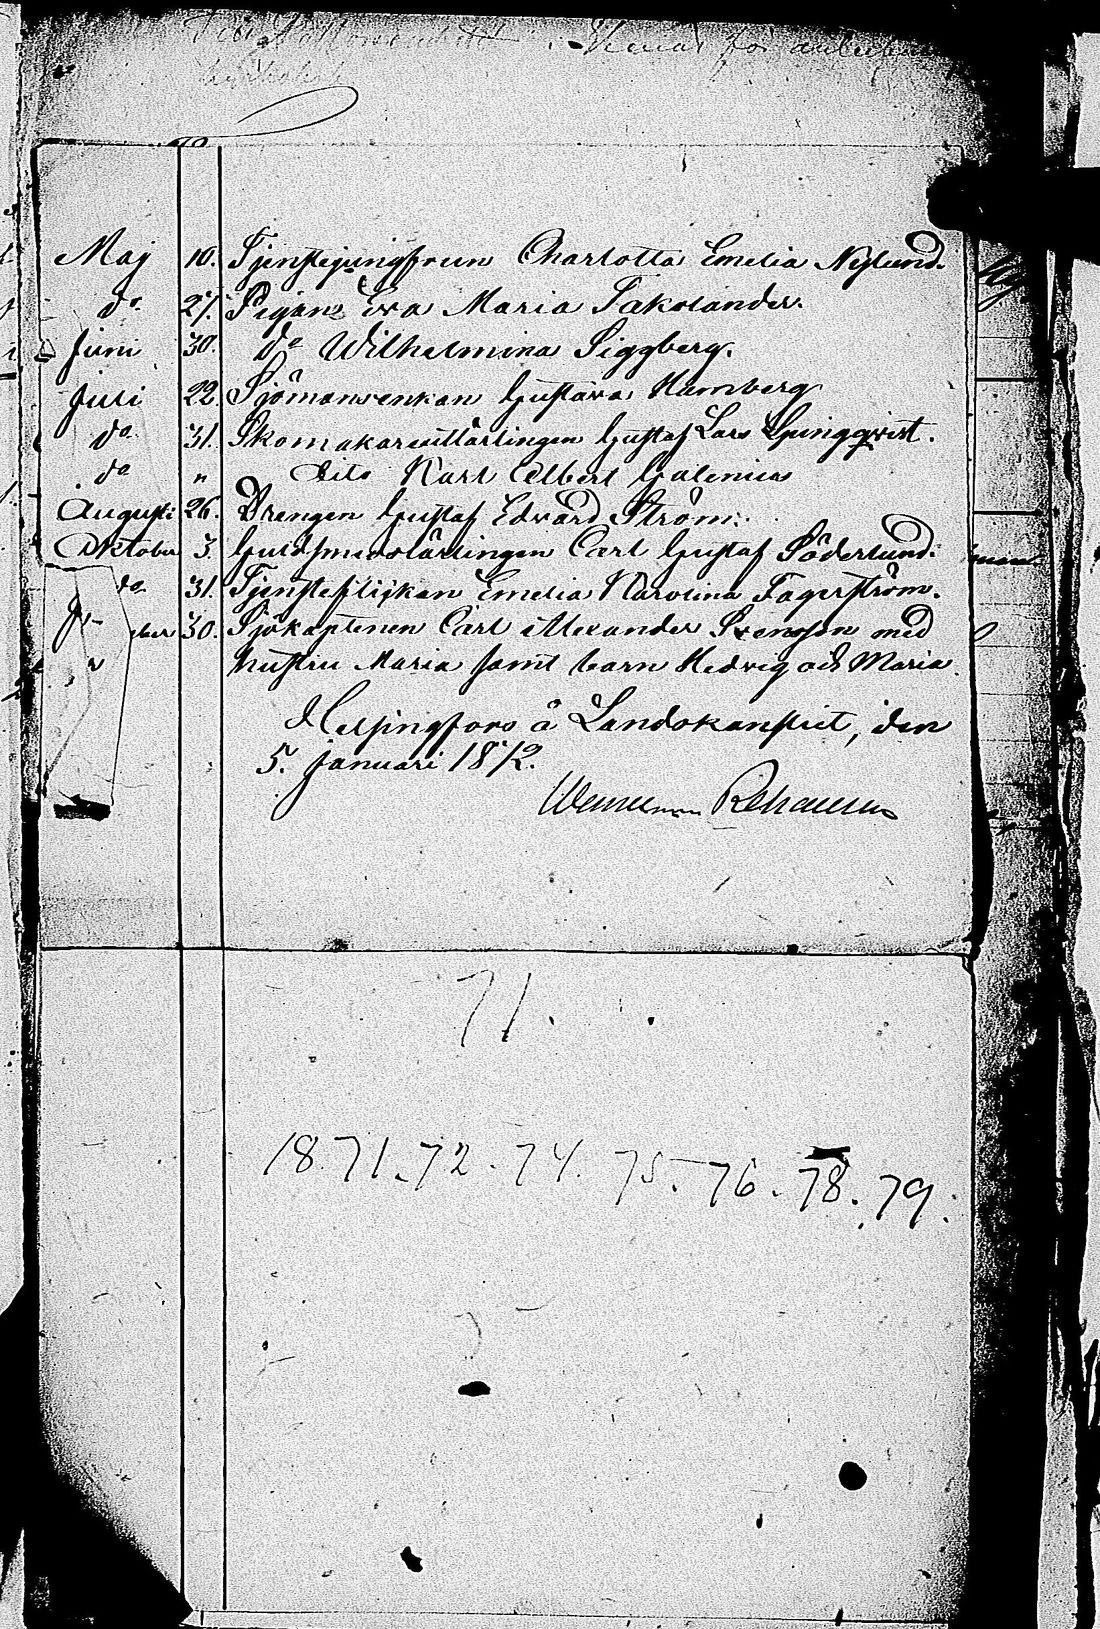 Maj 10. Tjenstejungfrun Charlotta Emelia Nylund.
do 27. Pigan Eva Maria Takolander.
Juni 30. do Wilhelmina Siggberg.
Juli 22. Sjömansenkan Gustava Hamberg
do 31. Skomakareutlärlingen Gustaf Lars Ljungqvist.
do " dito Karl Albert Galenius
Augusti 26. Drengen Gustaf Edvard Ström.
Oktober 3. Guldsmedslärlingen Carl Gustaf Söderlund.
do 31. Tjensteflickan Emelia Karolina Fagerström.
ber 30. Sjökaptenen Carl Alexander Svensson med
" hustru Maria samt barn Hedvig och Maria.
Helsingfors å Landskansliet, den
5. Januari 1872.
71.
18.71.72.74.75.76.78.79.